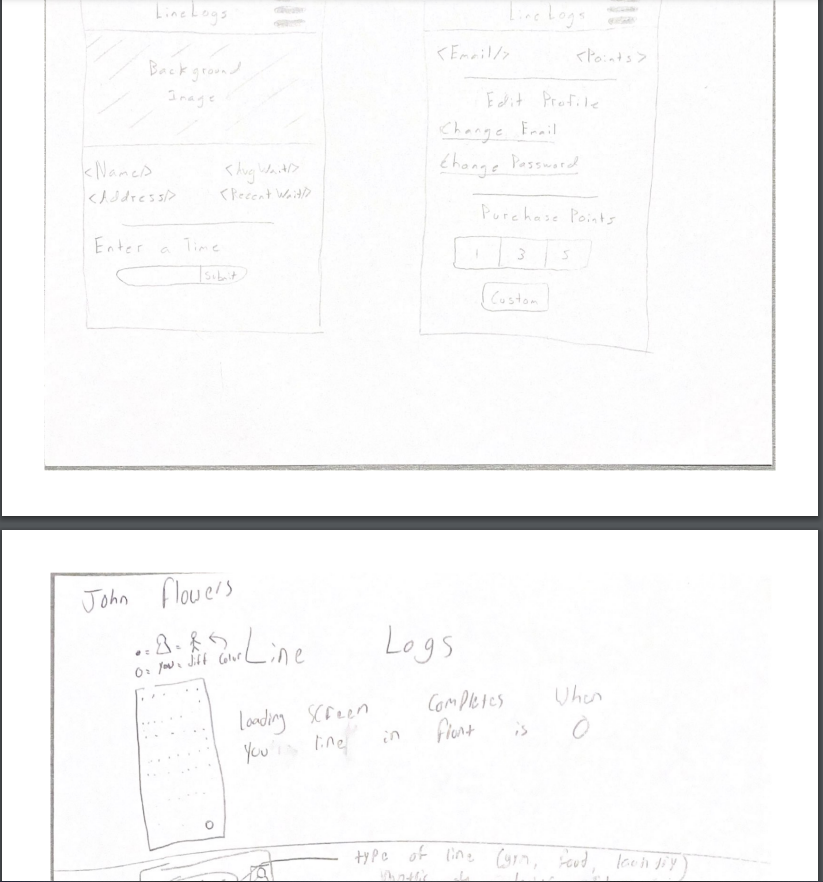 LineLogs
Background
Image
<Name/>
<AvgWait/>
<Address/>
<RecentWait/>
Enter a Time
Submit
Line Logs
<Email/>
<Points>
Edit Profile
Change Email
Change Password
Purchase Points
1 3 5
Custom
John Flowers
O = You = diff color
Line Logs
Loading Screen Completes When
You line in front is 0
type of line (gym, food, laundry)